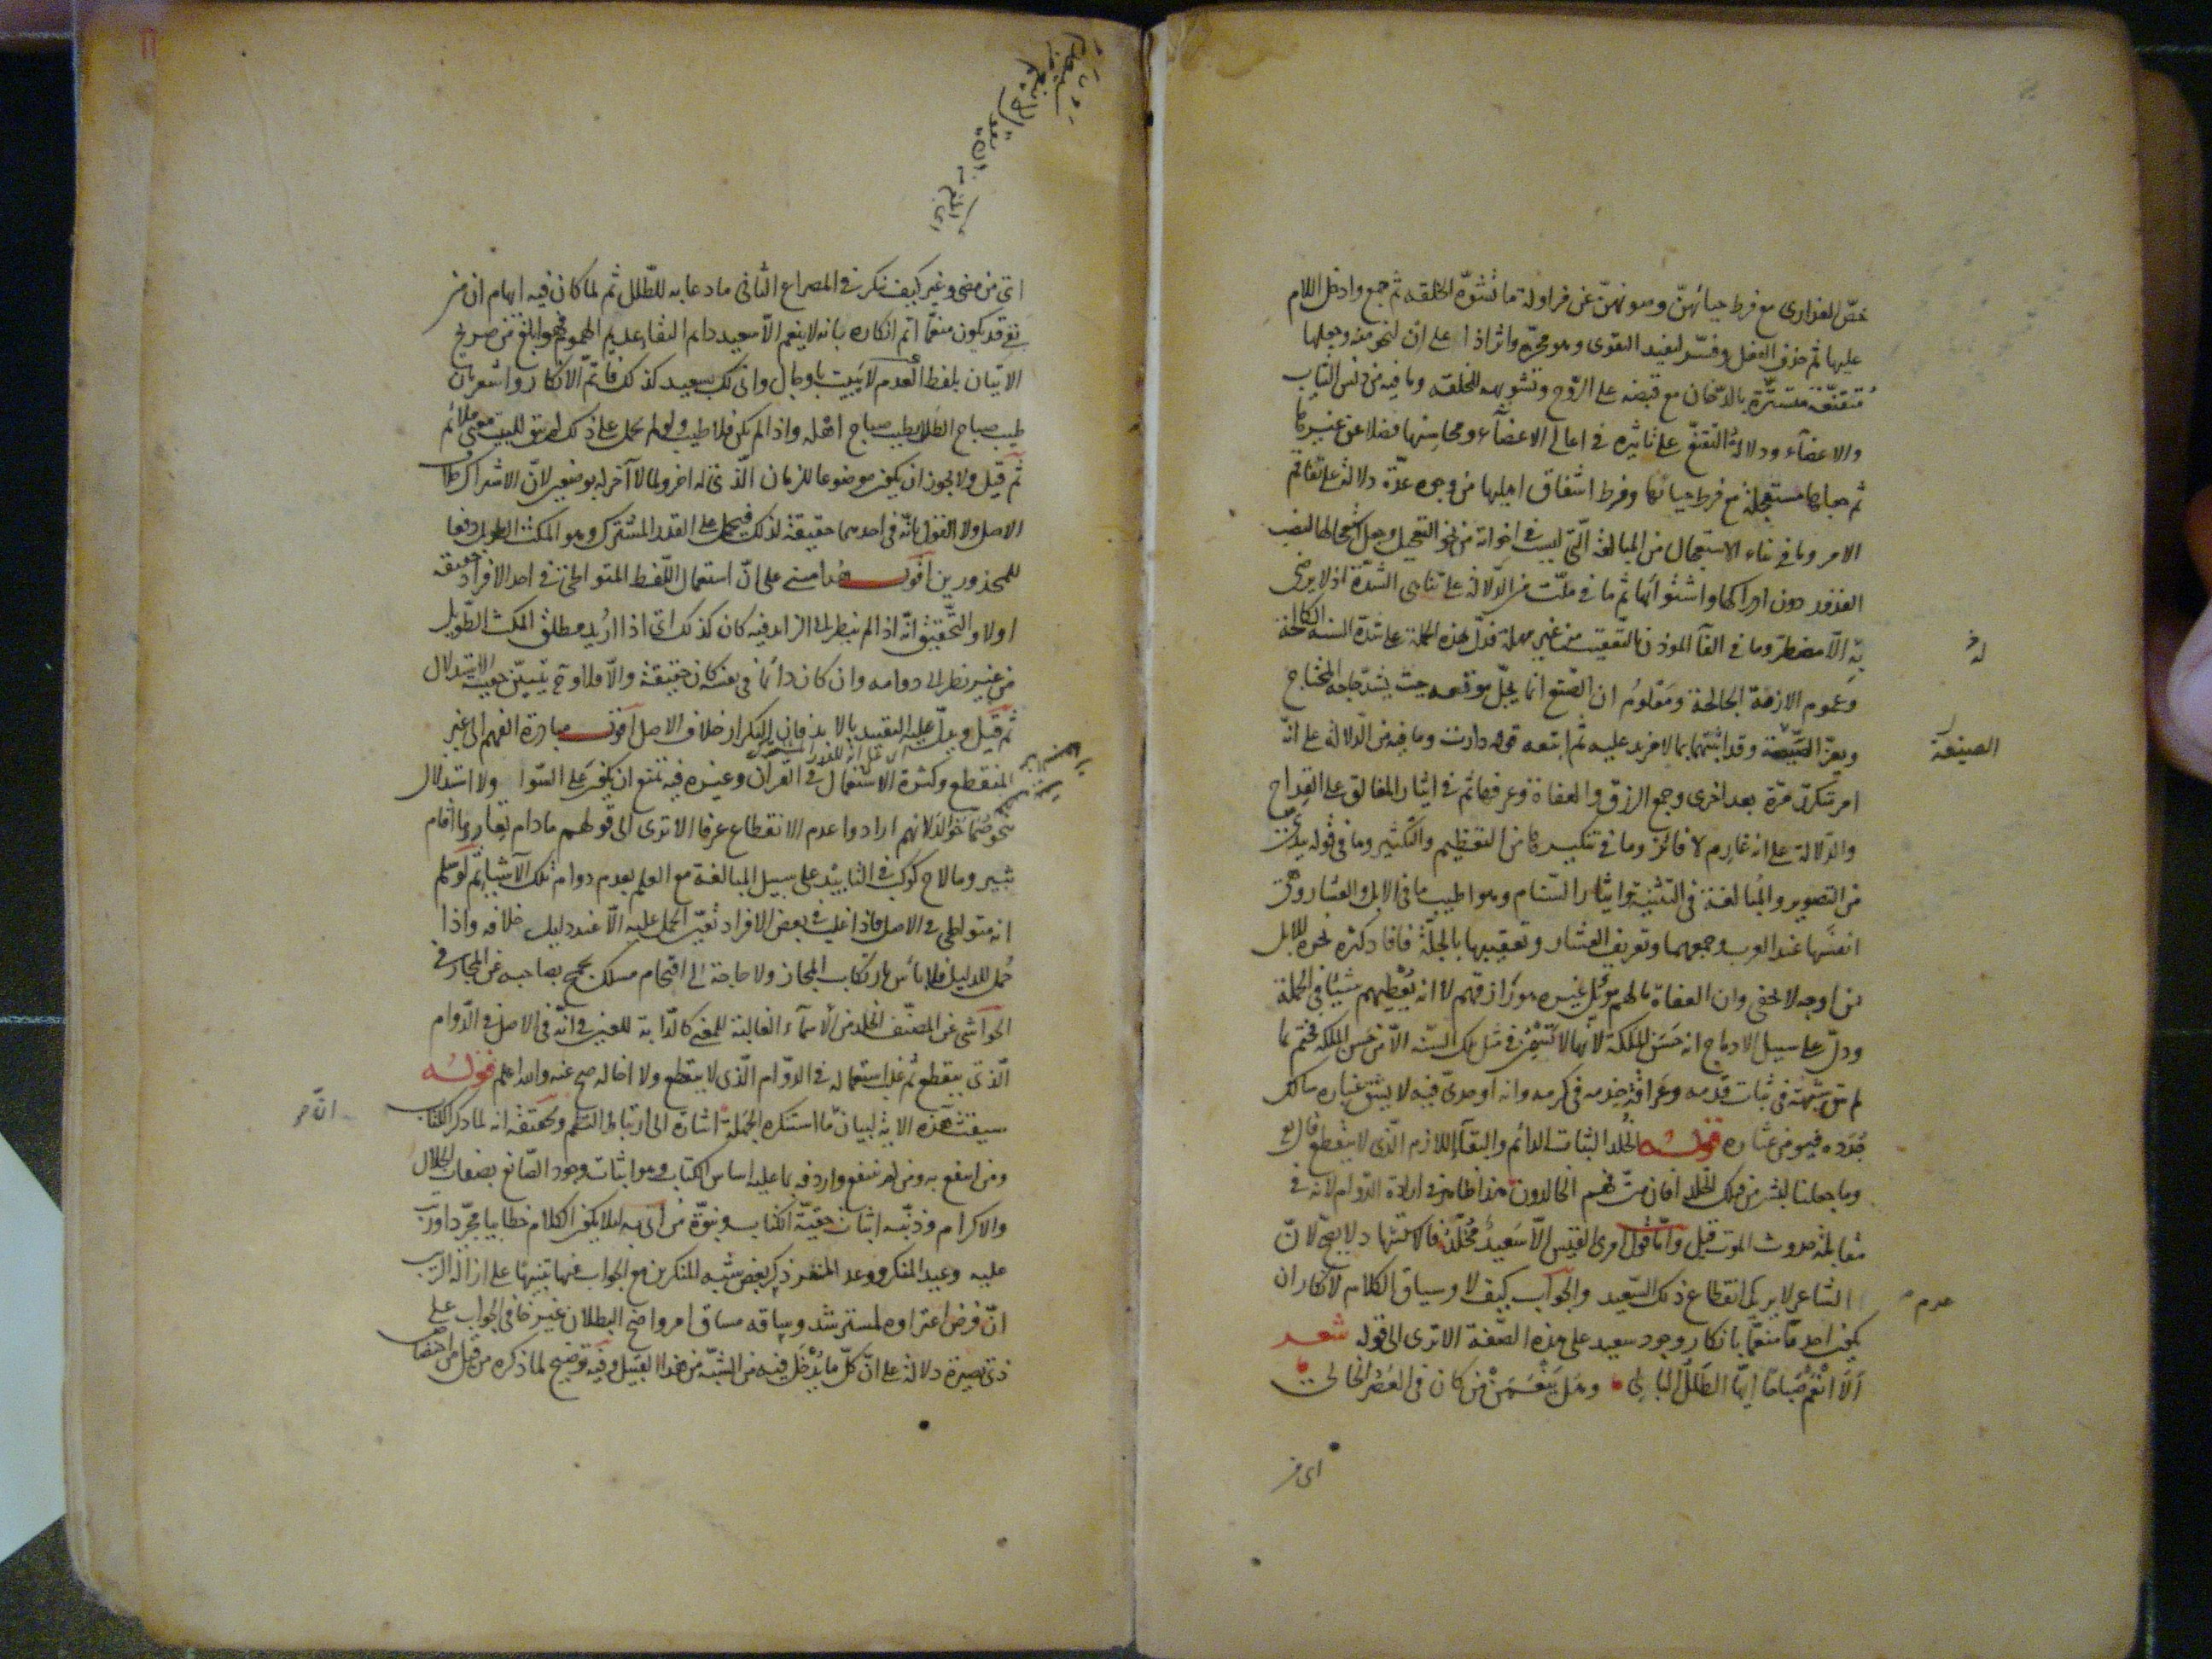 خصّ العذارى مع فرط حيائهنّ وصونهنّ عن مزاولة ما تشوّه الخلقه ثم جمع وادخل اللام
عليها ثم حذف الفعل وفسّر ليفيد التقوى وهو محرّم واثر اذا على ان لنحو منه وجعلها
متقنّعة متستّرة بالدّخان مع قبضه على الرّوح وتشويهه للخلقة وما فيه من دنس الثياب
والاعضاء ودلالة التقنّع على تاثيره في اعالى الاعضآء ومحاسنها فضلا عن غيرها
ثم جعلها مستعجلة مع فرط حيائها وفرط اشفاق اهليها من وجوه عدّة دلالة على تفاقم
الامر وما في بناء الاستعجال من المبالغة الّتي ليست في اخواته من نحو التعجيل وجعل استعجالها لنصب
القدور دون ادراكها واشتوائها ثم ما في ملّت من الدّلالة على تناهى الشدّة اذ لا يرضى
به الّا مضطرّ وما في الفآ الموذن بالتعقيب من غير مهلة فدلّ بهذه الجملة على شدّة السنة الكالحة
له
وعموم الازمة الجالحة ومعلوم ان الصّنع انما يجلّ موقعه حيث يشدّ حاجة المحتاج
ويعزّ الصنيعة وقد اثبتهما بما لا مزيد عليه ثم اتبعه قوله دارت وما فيه من الدّلالة على انّه
الصنيعة
امر تكرّر مرّة بعد اخرى وجمع الرزق والعفاة وعرفهما ثم في ايثار المغالق على القداح
والدّلالة على انه غارم لا فائز وما في تنكيرها من التعظيم والتكثير وما في قوله بيدىّ
من التصوير والمبالغة في التثنية وايثار السّنام وهو اطيب ما في الابل والعشار وهى
انفسها عند العرب وجمعهما وتعريف العشار وتعقيبها بالجلّة فافاد كثرة نحره للابل
من اوجه لا تخفى وان العفاة ما لهم موئل غيره هو رازقهم لا انه يعطيهم شيئا في الجملة
ودلّ على سبيل الادماج انه حسن الملكة لانها لا تسمن في مثل تلك السنه الّا من حسن الملكه فختم بما
لم تبق شبهة في ثبات قدمه وعراقة جذمه في كرمه وانه اوحدىّ فيه لا يشق غباره سالك
جدده فيومن عثاره قوله الخلد الثبات الدائم والبقآ اللازم الّذى لا ينقطع قال تع
وما جعلنا لبشر من قبلك الخلد افان متّ فهم الخالدون هذا ظاهر في ارادة الدّوام لانه في
مقابلة حدوث الموت قيل وامّا قول امرئ القيس الّا سعيد مخلّد فالاستشهاد لا يصحّ لانّ
الشاعر لا يرى انقطاع ذلك السّعيد والجواب كيف لا وسياق الكلام لانكار ان
عدم
يكون احد مّا منعّما بانكار وجود سعيد على هذه الصّفة الا ترى الى قوله شعر
الا انعم صباحا ايّها الطلل البالى وهل ينعمن من كان في العصر الخالى
اى من
اى من مضى وغبر كيف نكر في المصراع الثانى ما دعا به للطّلل ثم لما كان فيه ايهام ان من
بقى قد يكون منعّما اتم انكاره بانه لا ينعم الّا سعيد دائم البقاء عديم الهموم فهو ابلغ من صريح
الاتيان بلفظ العدم لا يبيت باوجال وانى لك بسعيد كذلك فاتمّ الانكار واشعر بان
طيب صباح الطلل بطيب صباح اهله واذا لم يكن فلا طيب ولو لم يحمل على ذلك لم يبق للبيت معنى ملائم
ثم قيل ولا يجوز ان يكون موضوعا للزمان الّذى له اخر ولما لا آخر له بوضعين لانّ الاشتراك خلاف
الاصل ولا القول بانّه في احدهما حقيقة لذلك فيحمل على القدر المشترك وهو المكث الطويل دفعا
للمحذورين اقول هذا مبنى على انّ استعمال اللّفظ المتواطئ في احد الافراد حقيقة
اولا والتّحقيق انّه اذا لم ينظر الى الزايد فيه كان كذلك اى اذا اريد مطلق المكث الطّويل
من غير نظر الى دوامه وان كان دائما في نفسه كان حقيقة والّا فلا وح يتبيّن الاستدلال
ثم قيل ويدلّ عليه التقييد بالابد فان التكرار خلاف الاصل اقول مبادرة الفهم الى غير
المنقطع وكثرة الاستعمال في القرآن وغيره فيه تمنع ان يكون على السّوا ولا استدلال
خوالد لانهم ارادوا عدم الانقطاع عرفا الا ترى الى قولهم ما دام تعار وما اقام
ثبير وما لاح كوكب في التابيد على سبيل المبالغة مع العلم بعدم دوام تلك الاشياء ثم لو سلم
انه متواطئ في الاصل فاذا غلب في بعض الافراد تعيّن الحمل عليه الّا عند دليل خلافه واذا
حمل للدليل فلا بأس بارتكاب المجاز ولا حاجة الى اقتحام مسلك يجمح بصاحبه عن المجاز في
الحواشى عن المصنّف الخلد من الاسمآء الغالبة للمعنى كالدّابة للعين في انّه في الاصل في الدّوام
الّذى ينقطع ثم غلب استعماله في الدوّام الّذى لا ينقطع ولا اخاله صح عنه والله اعلم قوله
سيقت هذه الاية لبيان ما استنكره الجهلة اشارة الى ارتباط النظم وتحقيقه انه لما ذكر الكتاب
ومن انتفع به ومن لم ينتفع واردفه بما عليه اساس الكتاب وهو اثبات وجود الصّانع بصفات الجلال
والاكرام وذنّبه اثبات حقيّة الكتاب ونبوّة من اتى به لئلا يكون الكلام خطابيا مجرّدا ورتب
عليه وعيد المنكر ووعد المقر ذكر بعض شبه المنكرين مع الجواب عنها تنبيها على ازالة الريب
ان فرض اعتراوه لمسترشد وساقه مساق امر واضح البطلان غير خافى الجواب على
ذى بصيرة دلالة على انّ كلّ ما يدخل فيه من الشبه من هذا القبيل وفيه توضيح لما ذكره من قبل من اختصاص